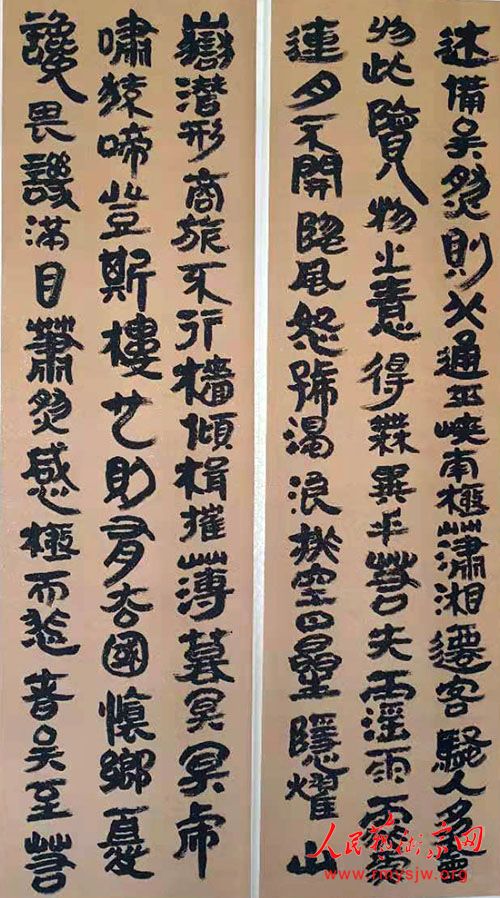 述備矣然則北通巫峽南極瀟湘遷客騷人多會
於此覽物之情得無異乎若夫霪雨霏霏
連月不開陰風怒號濁浪排空日星隱耀山
嶽潛形商旅不行檣傾楫摧薄暮冥冥虎
嘯猿啼登斯樓也則有去國懷鄉憂
讒畏譏滿目蕭然感極而悲者矣至若
人民藝術家网
www.rmysjw.org